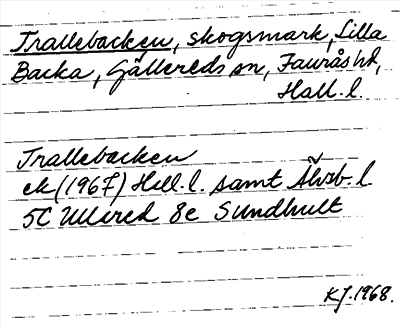 Trallebacken, skogsmark, Lilla
Backa, Gällereds sn, Faurås hd,
Hall. l.
Trallebacken
ek (1967) Hall. l. samt Älvsb. l
5C Ullared 8e Sundhult
KJ. 1968.